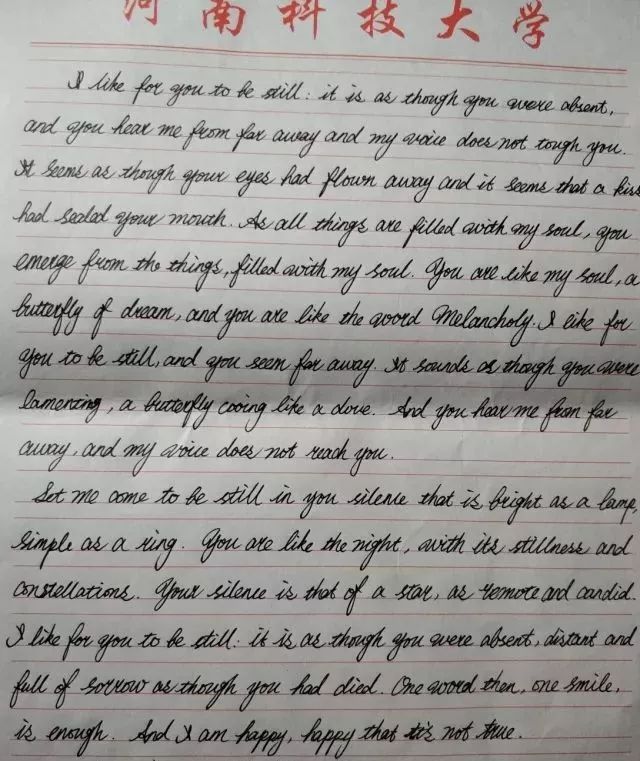 河南科技大学
I like for you to be still: it is as though you were absent,
and you hear me from far away and my voice does not tough you.
It seems as though your eyes had flown away and it seems that a kiss
had sealed your mouth. As all things are filled with my soul, you
emerge from the things, filled with my soul. You are like my soul, a
butterfly of dream, and you are like the word Melancholy. I like for
you to be still, and you seem far away. It sounds as though you were
lamenting, a butterfly cooing like a dove. And you hear me from far
away, and my voice does not reach you.
Let me come to be still in you silence that is bright as a lamp,
simple as a ring. You are like the night, with its stillness and
constellations. Your silence is that of a star, as remote and candid.
I like for you to be still: it is as though you were absent, distant and
full of sorrow as though you had died. One word then, one smile,
is enough. And I am happy, happy that it's not true.